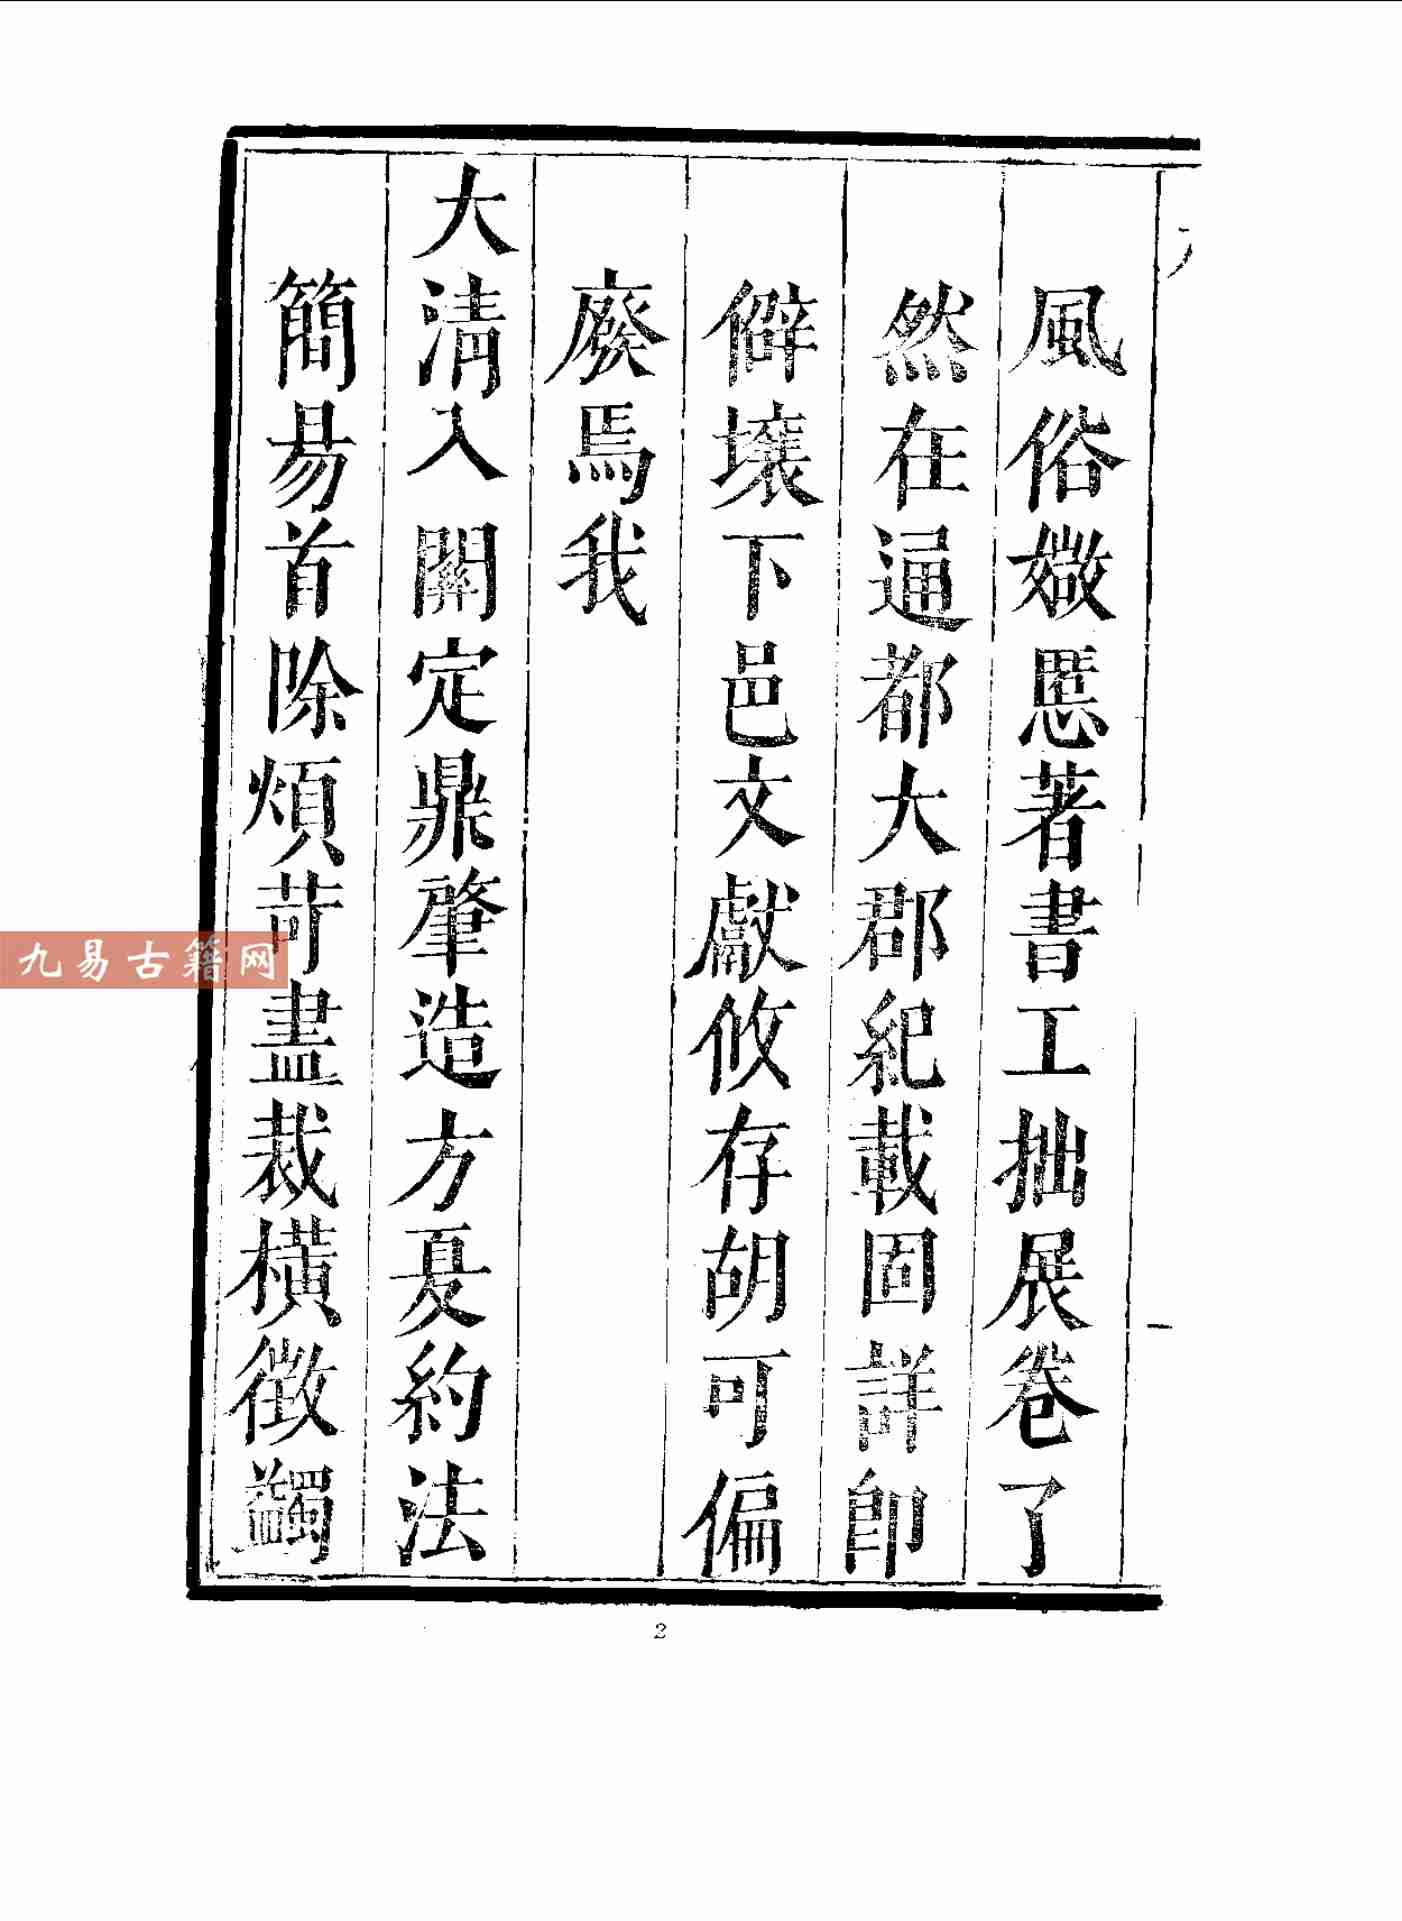 風俗媺慝著書工拙展卷了
然在逼都大郡紀載固詳即
僻壤下邑文獻攸存胡可偏
廢焉我
大清入關定鼎肇造方夏約法
簡易首除煩苛盡裁橫徵蠲
九易古籍网
2